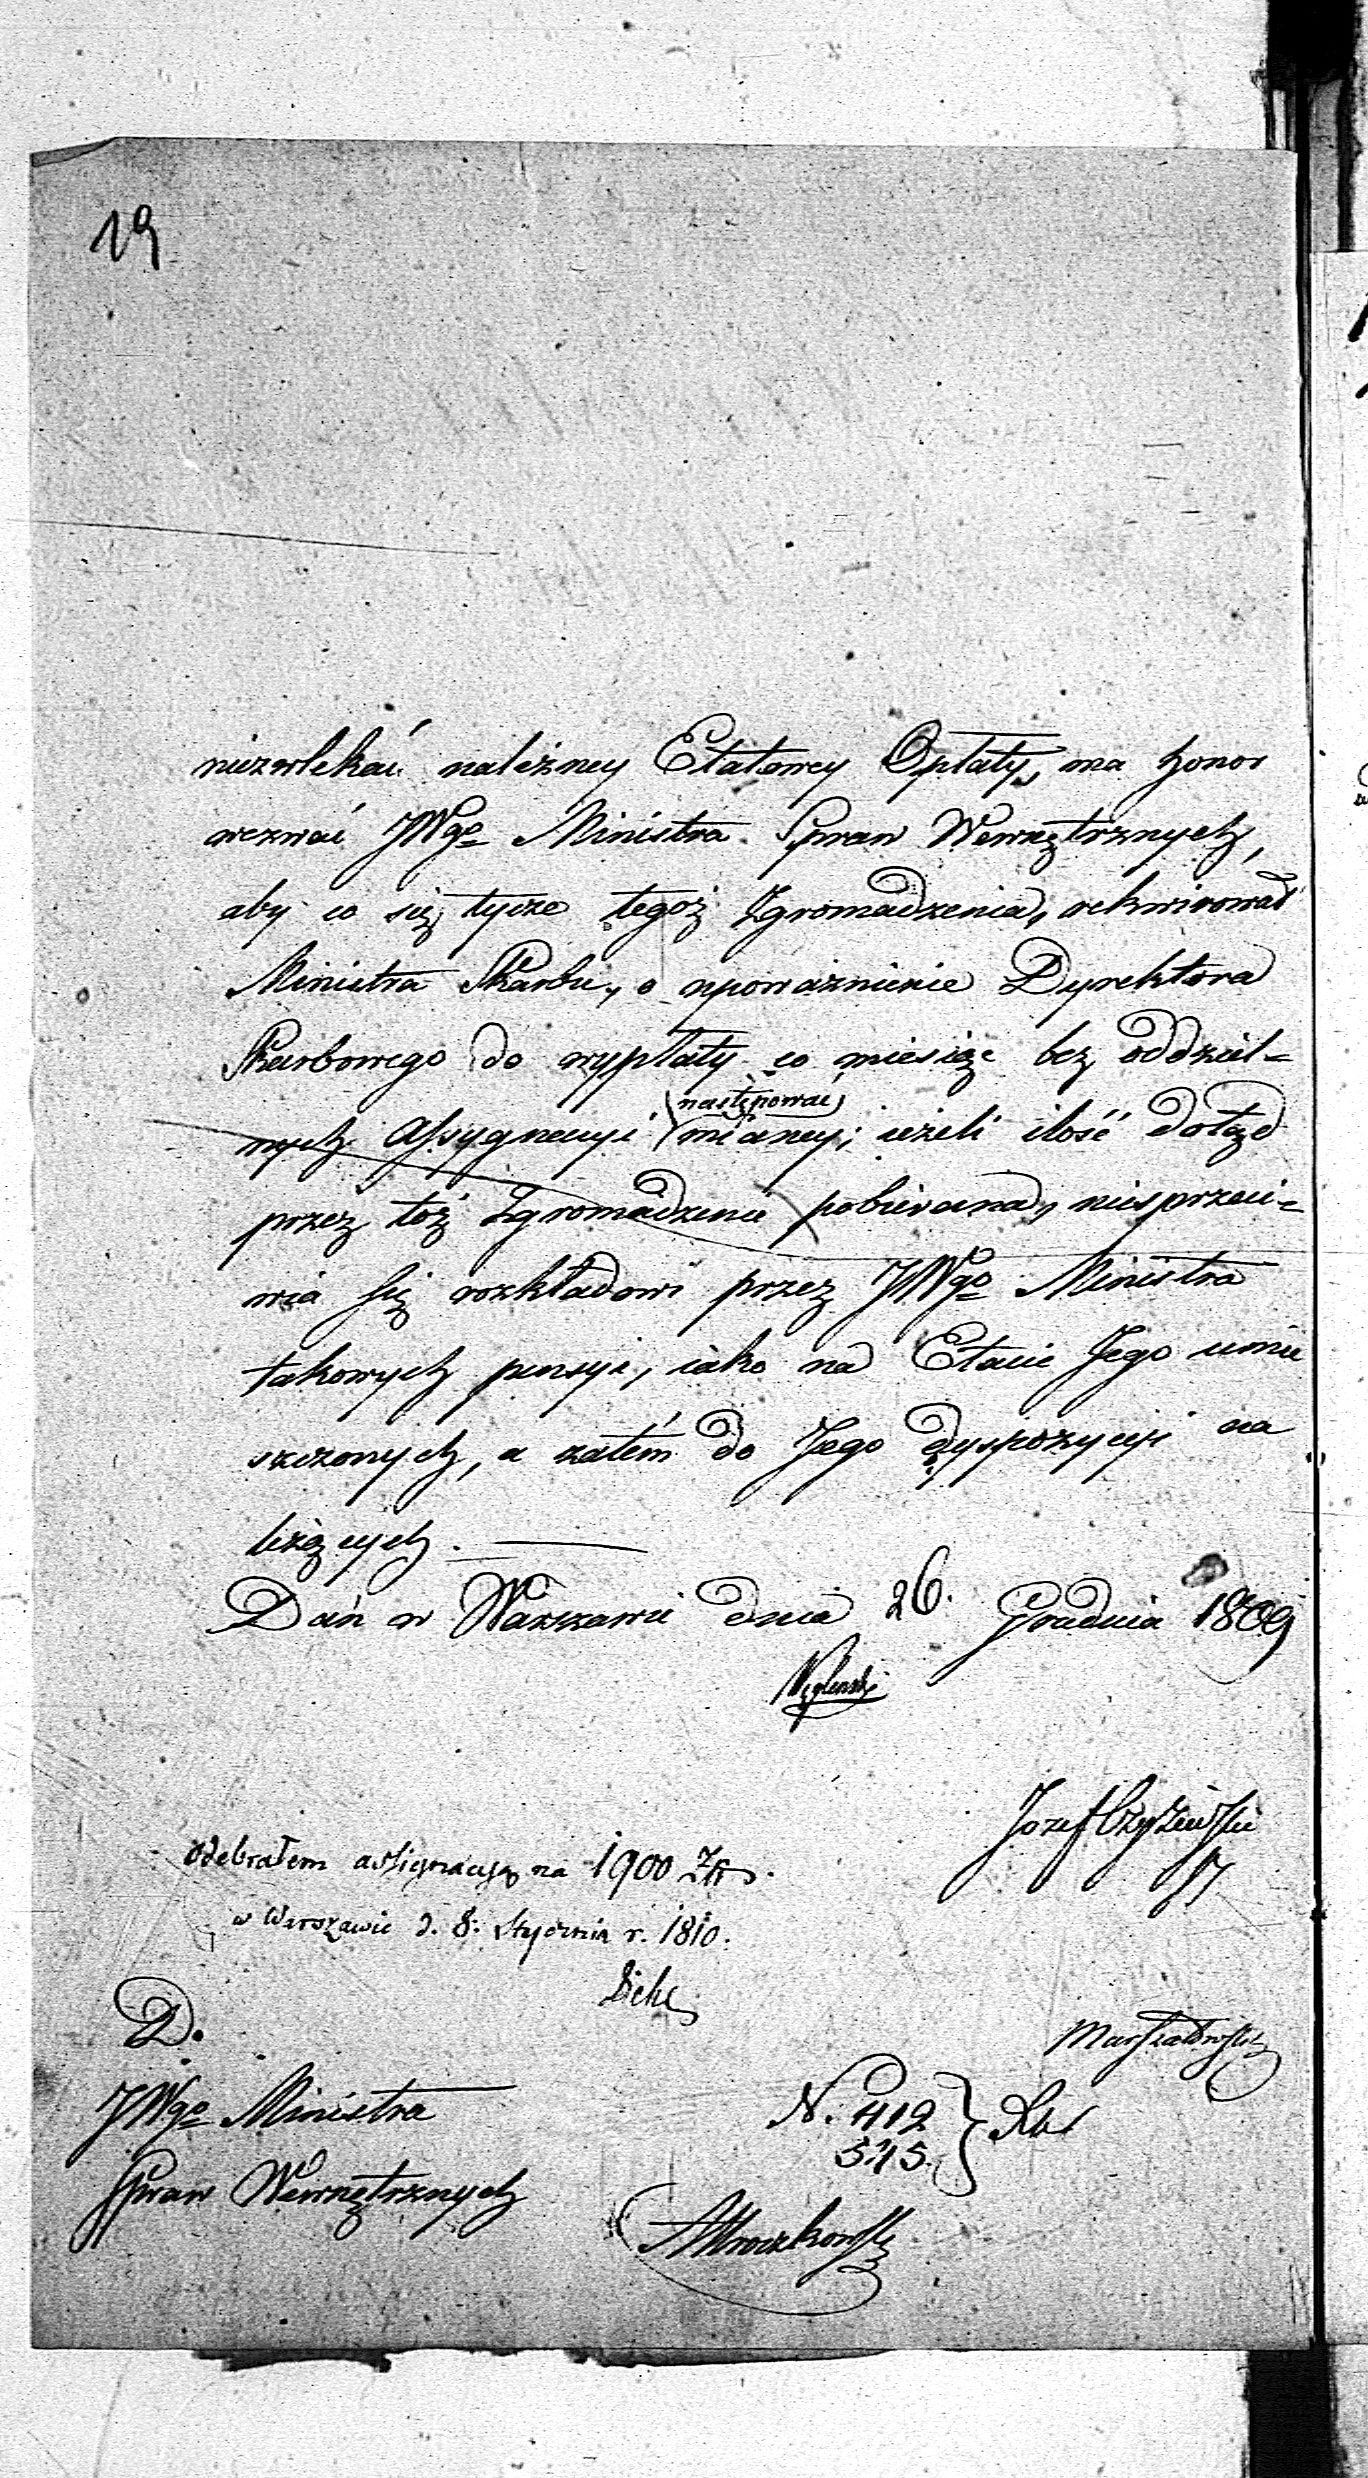 19
niezwlekać należney Etatowey Opłaty, ma honor
wezwać JWgo Ministra Spraw Wewnętrznych,
aby co się tycze tegoż Zgromadzenia, rekwirował
Ministra Skarbu, o upoważnienie Dyrektora
Skarbowego do wypłaty co miesiąc bez oddziel-
nych Assygnacyi (następować)
mianey; ieżeli ilość dotąd
przez toż Zgromadzenie pobierana, niesprzeci-
wia się rozkładowi przez JWgo Ministra
takowych pensyi, iako na Etacie Jego umie
szczonych, a zatém do Jego dyspozycyi na
leżących.
Dań w Warszawie dnia 26. Grudnia 1809
Węgleński
Jozef
odebrałem assignacyą na 1900 Złł
w Warszawie d. 8. Stycznia r. 1810.
D.
JWgo Ministra
Spraw Wewnętrznych
Marszałowski
N. 412
545.
AMroczkowski